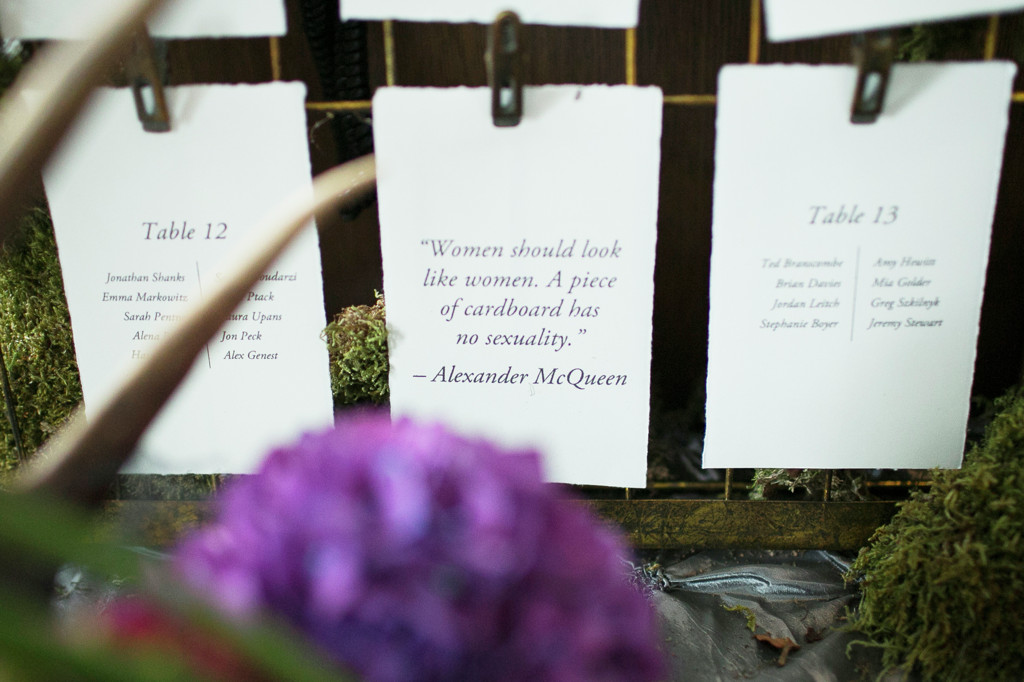 Table 12
Jonathan Shanks
Emma Markowitz Ptack
Sarah
Alena Jon Peck
Alex Genest
"Women should look
like women. A piece
of cardboard has
no sexuality."
– Alexander McQueen
Table 13
Ted Branscombe Amy Hewitt
Brian Davies Mia Golder
Jordan Leitch Greg Szkilnyk
Stephanie Boyer Jeremy Stewart